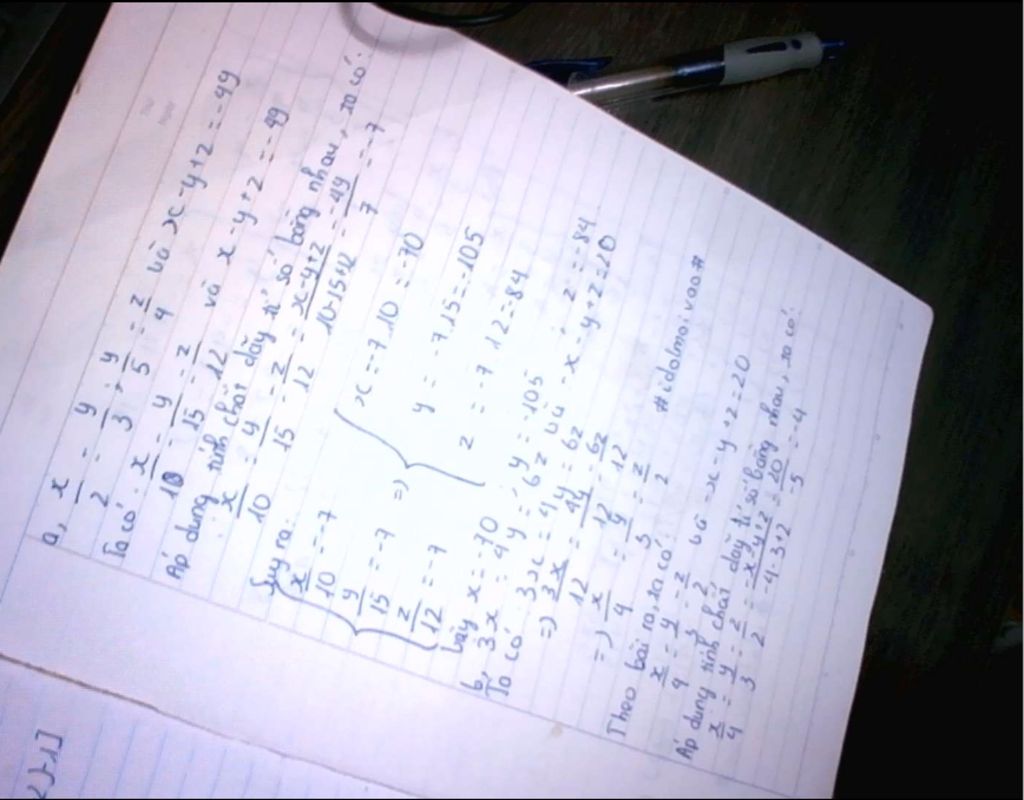 a, x/2 = y/3 ; y/5 = z/4 và x-y+z=-49
Ta có: x/10 = y/15 = z/12 và x-y+z=-49
Áp dụng tính chất dãy tỉ số bằng nhau, ta có:
x/10 = y/15 = z/12 = x-y+z/10-15+12 = -49/7 = -7
Suy ra:
x/10 = -7 => x = -7.10 = -70
y/15 = -7 y = -7.15 = -105
z/12 = -7 z = -7.12 = 84
Vậy x = -70 ; y = -105 z = -84
b, 3x = 4y = 6z và -x-y+z=20
Ta có: 3x = 4y = 6z
=> 3x/12 = 4y/12 = 6z/12
=> x/4 = y/3 = z/2
Theo bài ra, ta có: #idolmoivao#
x/4 = y/3 = z/2 và -x-y+z=20
Áp dụng tính chất dãy tỉ số bằng nhau, ta có:
x/4 = y/3 = z/2 = -x-y+z/-4-3+2 = 20/-5 = -4
2)-1]